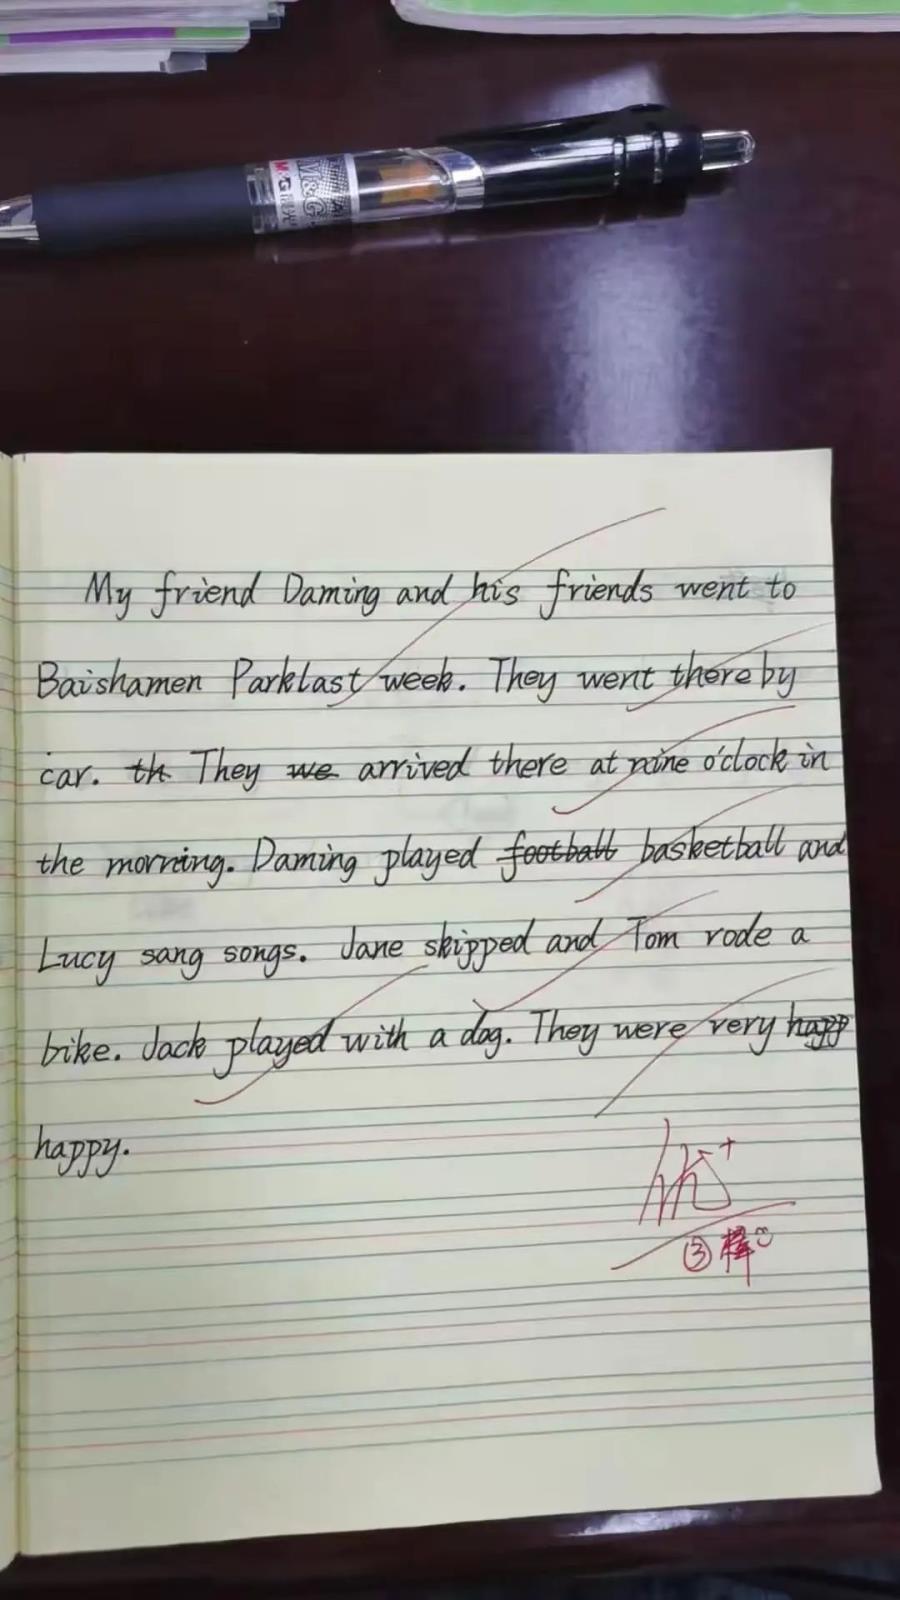 M&G
My friend Daming and his friends went to
Baishamen Park last week. They went there by
car. th They we arrived there at nine o'clock in
the morning. Daming played football basketball and
Lucy sang songs. Jane skipped and Tom rode a
bike. Jack played with a dog. They were very happ
happy.
优+
③棒